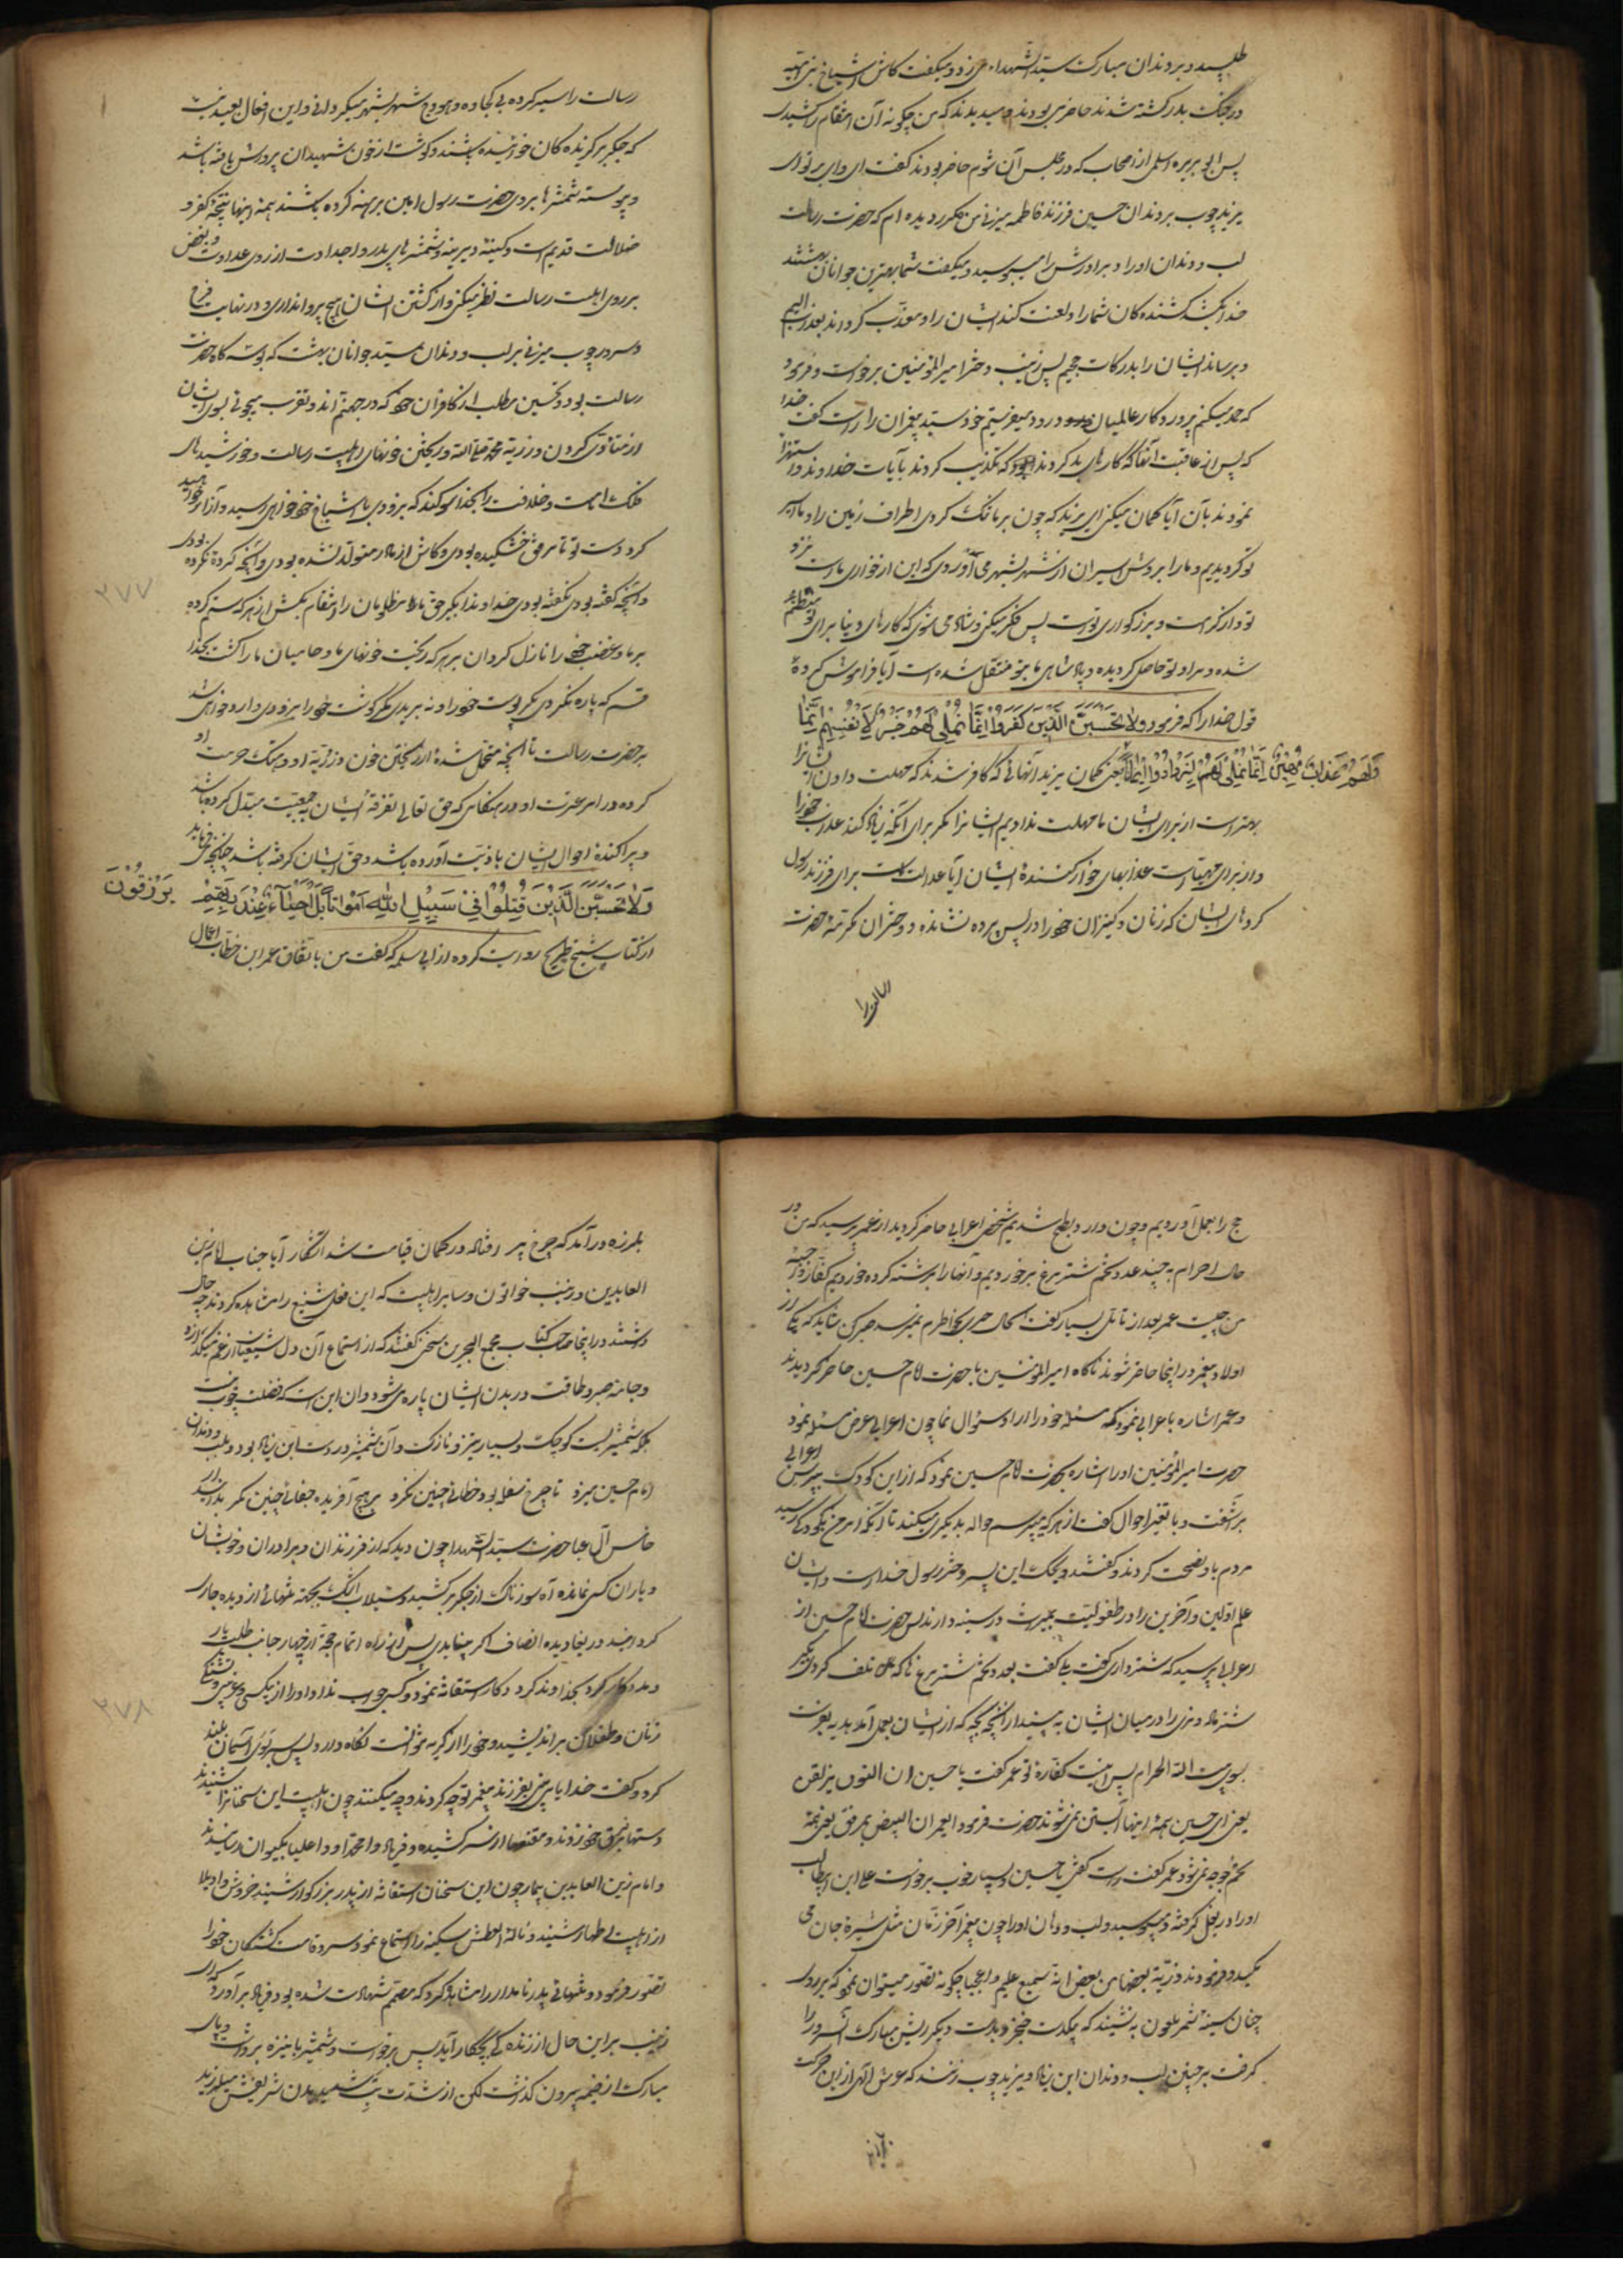 طلبید و بر دندان مبارک سید الشهداء میزد و میگفت کاش اشیاخ بنی امیه
در جنگ بدر کشته شدند حاضر می بودند و میدیدند که من چگونه آن انتقام را کشیدم
پس ابو بریره اسلمی از اصحاب که در مجلس آن شوم حاضر بودند گفت ای وای بر تو ای
یزید چوب بر دندان حسین فرزند فاطمه میزنی من مکرر دیده ام که حضرت رسالت
لب و دندان او را و برادرش را میبوسید و میگفت شما بهترین جوانان بهشتند
خدا بکشد کشنده کان شما را و لعنت کند ایشان را و معذب گرداند بعذاب الیم
و برساند ایشان را بدرکات جحیم پس زینب دختر امیر المؤمنین برخواست و فرمود
که حمد میکنم پروردگار عالمیان و درود میفرستم جد خود سید پیغمبران را راست گفت خدا
که پس از عاقبت آنها که کارهای بد کردند این بود که تکذیب کردند بآیات خدا و بدان استهزا
نمودند بآن آیا گمان میکنی ای یزید که چون بر ما تنک کردی اطراف زمین را و ما اسیر
تو گردیدیم و ما را بروش اسیران از شهر بشهر می آوردی که این از خواری ماست نزد
تو و از کرامت و بزرگواری تو است پس فکر میکنی و شاد می شوی که کارهای دنیا برای تو منتظم
شده و مراد تو حاصل گردیده و پادشاهی ما بتو منتقل شده است آیا فراموش کردهٔ
قول خدا را که فرمود وَلا تَحْسَبَنَّ الَّذِينَ كَفَرُوا إِنَّمَا نُمْلِي لَهُمْ خَيْرٌ لِأَنْفُسِهِمْ إِنَّمَا
وَلَهُمْ عَذَابٌ مُهِينٌ إِنَّمَا نُمْلِي لَهُمْ لِيَزْدَادُوا إِثْمًا یعنی گمان نبرید آنهائی که کافر شدند که مهلت دادن ایشانرا
بهتر است از برای ایشان ما مهلت ندادیم ایشانرا مگر برای آنکه زیاد کنند عذاب خود را
و از برای مهیاست عذابهای خوار کنندهٔ ایشان آیا عدالت است برای فرزند رسول
کرده‌ای ایشان که زنان و کنیزان خود را در پس پرده نشانده و دختران مکرمهٔ حضرت
رسالت را
رسالت را سیر کرده بی کجاوه و هودج شهر بشهر میگردانی و این افعال بعید نیست
که جگر برگزیده کان خوائیده باشند و گوشت از خون شهیدان پرورش یافته باشد
و پیوسته شمشیرها بر روی حضرت رسول امین برهنه کرده باشند همه اینها نتیجهٔ کفر و
ضلالت قدیم است و کینهٔ دیرینه و شمشیرهای پدر و اجدادت از روی عداوت و بغض
بر روی اهلبیت رسالت نظر میکنی و از کشتن ایشان هیچ پروا نداری و در نهایت فرح
و سرور چوب میزنی بر لب و دندان سید جوانان بهشت که بوسه گاه حضرت
رسالت بود و تحسین مطلب از کافران خود که در جهنم اند و تقرب میجوئی بسوی ایشان
از متأذی کردن ذریهٔ محمد صلی الله و ریختن خونهای اهلبیت رسالت و خورشیدهای
فلک امامت و خلافت را بخدا سوگند که بزودی با شیاخ خود خواهی رسید و آرزو خواهی
کرد دست تو تا مرفق خشکیده بودی و کاش از مادر متولد نشده بودی و آنچه کردهٔ نکرده بودی
و آنچه گفته بودی نگفته بودی خداوندا بگیر حق ما و مظلومان را و انتقام بکش از هر که ستم کرده
بر ما و غضب خود را نازل گردان بر هر که ریخت خونهای ما و حامیان ما را کشت بخدا
قسم که پاره نکردی مگر پوست خود را و نه بریدی مگر گوشت خود را بزودی وارد خواهی شد
بر حضرت رسالت با آنچه متحمل شدهٔ از ریختن خون ذریهٔ او و هتک حرمت او
کرده در امر عترت او در هنگامی که حق تعالی تفرقهٔ ایشان بجمعیت مبدل کرده باشد
و پراکندهٔ احوال ایشان با ذیت آورده باشد و حق ایشان گرفته باشد چنانچه میفرماید
وَلا تَحْسَبَنَّ الَّذِينَ قُتِلُوا فِي سَبِيلِ اللّٰهِ أَمْوَاتًا بَلْ أَحْيَاءٌ عِنْدَ رَبِّهِمْ يُرْزَقُونَ
از کتاب شیخ طریح روایت کرده از ابی سلمه که گفت من باتفاق عمر ابن خطاب اعمال
۲۷۷
حج را بعمل آوردیم و چون وارد بطح شدیم شخص اعرابی حاضر گردید از عمر پرسید که من در
حال احرام بچند عدد تخم شتر مرغ برخوردیم و آنها را برشته کرده خوردیم کفاره بر
من چیست عمر بعد از تأمل بسیار گفت الحال چیزی بخاطرم نمیرسد صبر کن شاید که یکی از
اولاد پیغمبر در اینجا حاضر شوند ناگاه امیر المؤمنین با حضرت امام حسین حاضر گردیدند
و عمر اشاره باعرابی نمود که مسئله خود را از او سئوال نما چون اعرابی عرض مسئله نمود
حضرت امیر المؤمنین او را اشاره بحضرت امام حسین نمود که از این کودک بپرس اعرابی
برآشفت و با تغیر احوال گفت از هر که میپرسم حواله بدیگری میکنند تا آنکه امر من بکودک رسید
مردم باو نصیحت کردند و گفتند ویحک این پسر دختر رسول خداست و ایشان
علم اولین و آخرین را در طفولیت بمیراث در سینه دارند پس حضرت امام حسین از
اعرابی پرسید که شتر داری گفت بلی گفت بعدد تخم شتر مرغ تا که تلف کردی بگیر
شتر ماده و نر را در میان ایشان به بند از آنچه بچه که از ایشان بعمل آمد هدیه بفرست
بسوی بیت الله الحرام پس اینست کفارهٔ تو عمر گفت یا حسین ان النوق یزلقن
یعنی ای حسین همهٔ اینها آبستن نمی شوند حضرت فرمود ای عمر ان البیض یمرقن یعنی همهٔ
تخم جوجه نمی شود عمر گفت راست گفتی یا حسین و بسیار خوب برخواست علی ابن ابیطالب
او را در بغل گرفته و میبوسید و لب و دندان او را چون پیغمبر آخر زمان مثل شیرهٔ جان می
مکید و فرمودند ذریة بعضها من بعض انه سمیع علیم وا عجبا چگونه تصور میتوان نمود که بر روی
چنان سینه شمر ملعون به نشیند که بیکدست خنجر و بدست دیگر ریش مبارک آن سرور را
گرفت بر چنین لب و دندان ابن زیاد و یزید چوب زنند که عرش الهی از این حرکت
بلرزه درآمد که چرخ پیر رفتاد در گمان قیامت شد آشکار آیا جناب امام زین
العابدین و زینب خواتون و سایر اهلبیت که این فعل شنیع را مشاهده کردند چه حال
داشتند در اینجا صاحب کتاب مجمع البحرین سخنی گفته که از استماع آن دل شیعیان از غم میگدازد
و جامهٔ صبر و طاقت در بدن ایشان پاره می شود و آن این است که قضیب چوب نیست
بلکه شمشیریست کوچک و بسیار تیز و نازک و آن شمشیر در دست ابن زیاد بود و بلب و دندان
امام حسین میزد تا چرخ سفله بود خطائی چنین نکرد بر هیچ آفریده جفائی چنین نکرد
خامس آل عبا حضرت سید الشهدا چون دید که از فرزندان و برادران و خویشان
و یاران کسی نمانده آه سوزناک از جگر برکشید و سیلاب اشک بجهته تنهائی از دیده جاری
کرد پس از راه اتمام حجة از چهار جانب طلب یار
و مددکار کرد بخداوند کردگار استغاثه نمود و کسی جواب نداد او را از بیکسی و غریبی و تشنگی
زنان و طفلان براندیشید و خود را از گریه نتوانست نگاه دارد پس سر بسوی آسمان بلند
کرد و گفت خدایا می بینی بفرزند پیغمبر تو چه کردند و چه میکنند چون اهلبیت این سخنانرا شنیدند
دستها بفرق خود زدند و مقنعها از سر کشیده و فریاد وا محمدا و وا علیا بکیوان رسانیدند
و امام زین العابدین بیمار چون این سخنان استغاثه از پدر بزرگوار شنید خروش و واویلا
از اهلبیت اطهار شنید و نالهٔ العطش سکینه را استماع نمود سر و قامت کشتگان خود را
تصور فرمود و تنهائی پدر نامدار را مشاهده کرد که مصمم شهادت شده بود فریاد برآورد که ای
زینب بر این حال از زنده گی چکار آید پس برخواست و شمشیر با نیزه برداشت و پای
مبارک از خیمه بیرون گذاشت لکن از شدت تب شدید بدن شریفش میلرزید
۲۷۸